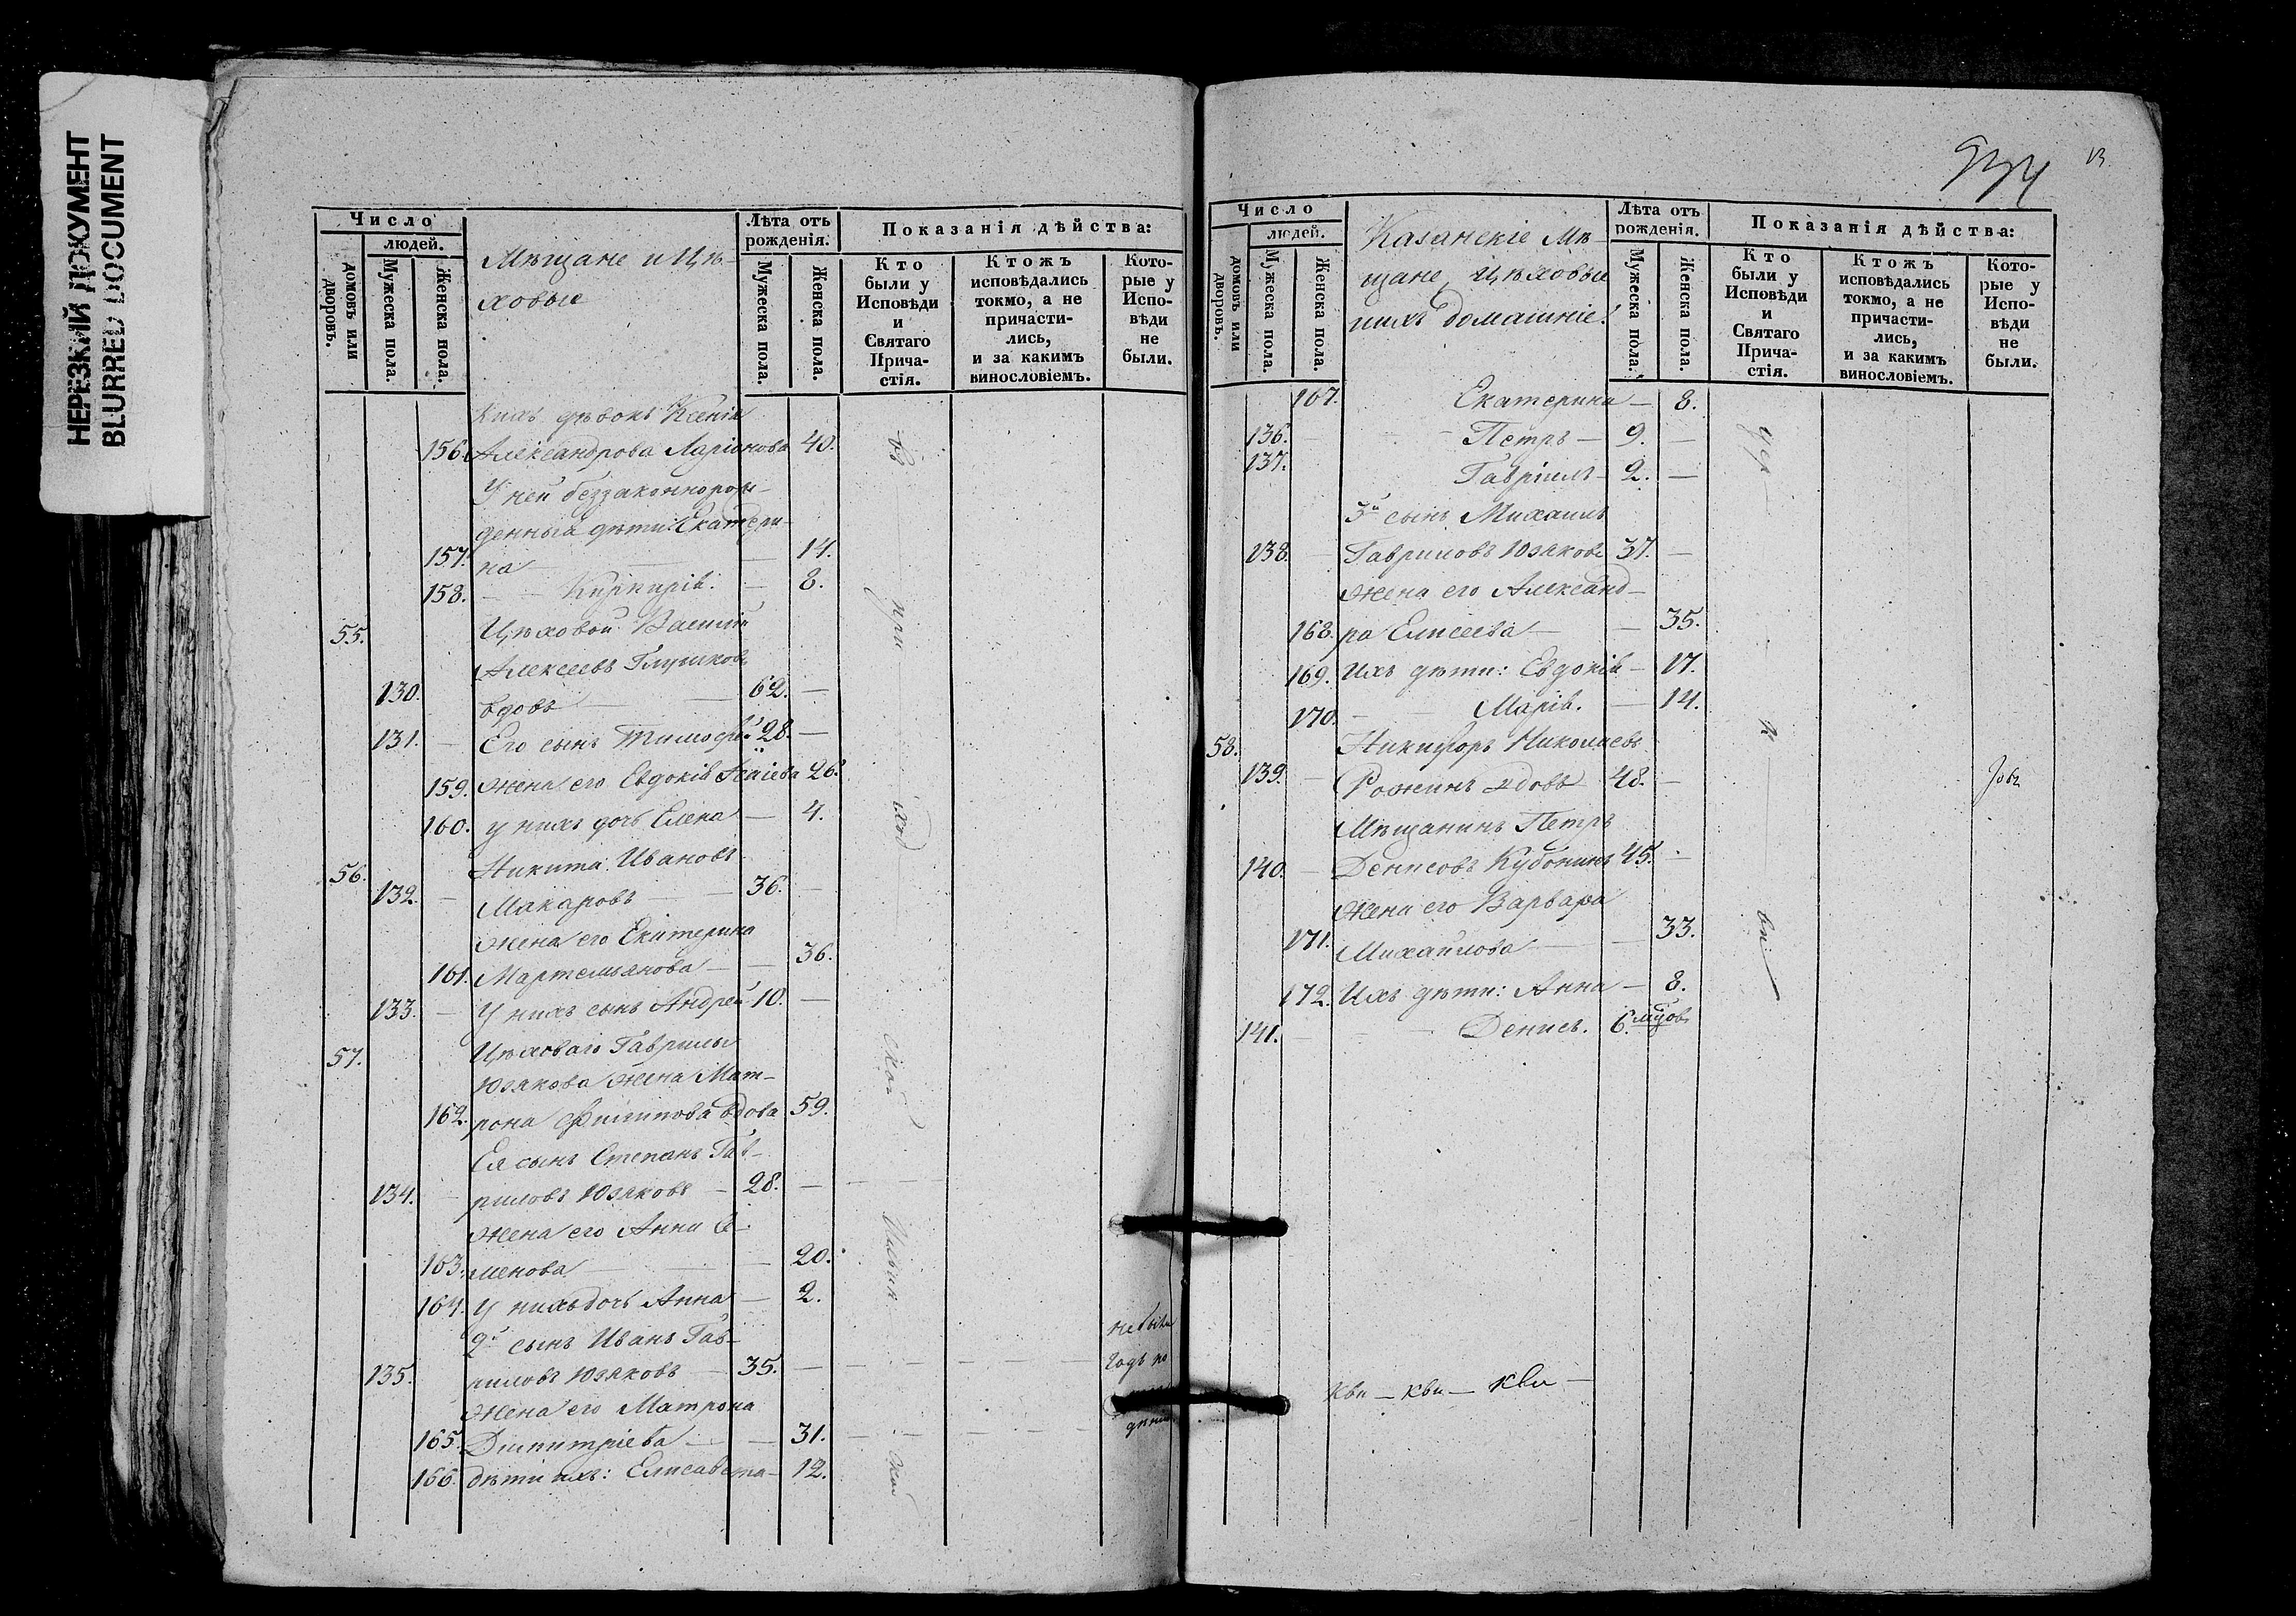 НЕРЕЗКИЙ ДОКУМЕНТ
BLURRED DOCUMENT
Число
людей.
домовъ или дворовъ.
Мужеска пола.
Женска пола.
Мѣщане и Цѣ-
ховые
Лѣта отъ рожденія.
Мужеска пола.
Женска пола.
Показанія дѣйства:
Кто были у Исповѣди и Святаго Причастія.
Ктожъ исповѣдались токмо, а не причастились, и за какимъ винословіемъ.
Которые у Исповѣди не были.
Ксенія
156. Александрова Ларіонова 40.
У ней беззаконнорож-
денныя дѣти: Екатери-
157. на — 14.
158. — — — 8.
55. Цѣховой Василій
Алексеевъ Глушковъ
130. вдовъ — 62. —
131. — Его сынъ Тимофей 28. —
159. жена его Евдокія Исаіева 26.
160. у нихъ дочь Елена — 4.
56. Никита Ивановъ
132. — Макаровъ — 36. —
жена его Екатерина
161. Мартемьянова — 36.
133. — У нихъ сынъ Андрей 10. —
57. Цѣховаго Гаврилы
Юзякова жена Мат-
162. рона Филиппова вдова 59.
Ея сынъ Степанъ Гав-
134. — риловъ Юзяковъ — 28. —
жена его Анна Се-
163. менова — 20.
164. у нихъ дочь Анна — 2.
2й сынъ Иванъ Гав-
135. риловъ Юзяковъ — 35. —
жена его Матрона
165. Димитріева — 31.
166. дѣти ихъ: Елисавета — 12.
при
ход
не были
934
13
Число
людей.
домовъ или дворовъ.
Мужеска пола.
Женска пола.
Казанскіе Мѣ-
щане, Цѣховые
и ихъ домашніе.
Лѣта отъ рожденія.
Мужеска пола.
Женска пола.
Показанія дѣйства:
Кто были у Исповѣди и Святаго Причастія.
Ктожъ исповѣдались токмо, а не причастились, и за какимъ винословіемъ.
Которые у Исповѣди не были.
167. Екатерина — 8.
136. — Петръ — 9. —
137. Гавріилъ — 2. —
3й сынъ Михаилъ
138. — Гавриловъ Юзяковъ 37. —
жена его Александ-
168. ра Елисеева — 35.
169. Ихъ дѣти: Евдокія — 17.
170. — Марія. — 14.
58. Никифоръ Николаевъ
139. — Рожинъ вдовъ 48. —
Мѣщанинъ Петръ
140. — Денисовъ Кубонинъ 45. —
жена его Варвара
171. Михайлова — 33.
172. Ихъ дѣти: Анна — 8.
141. — Денисъ. 6. мцовъ
цер
к
ви
кви — кви — кви —